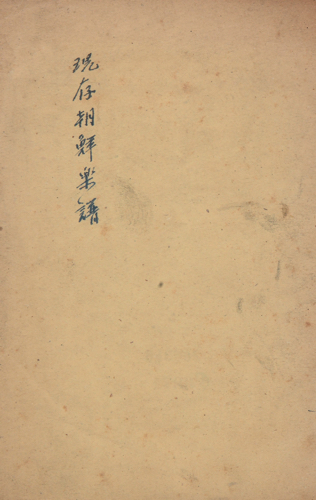 現存朝鮮楽譜